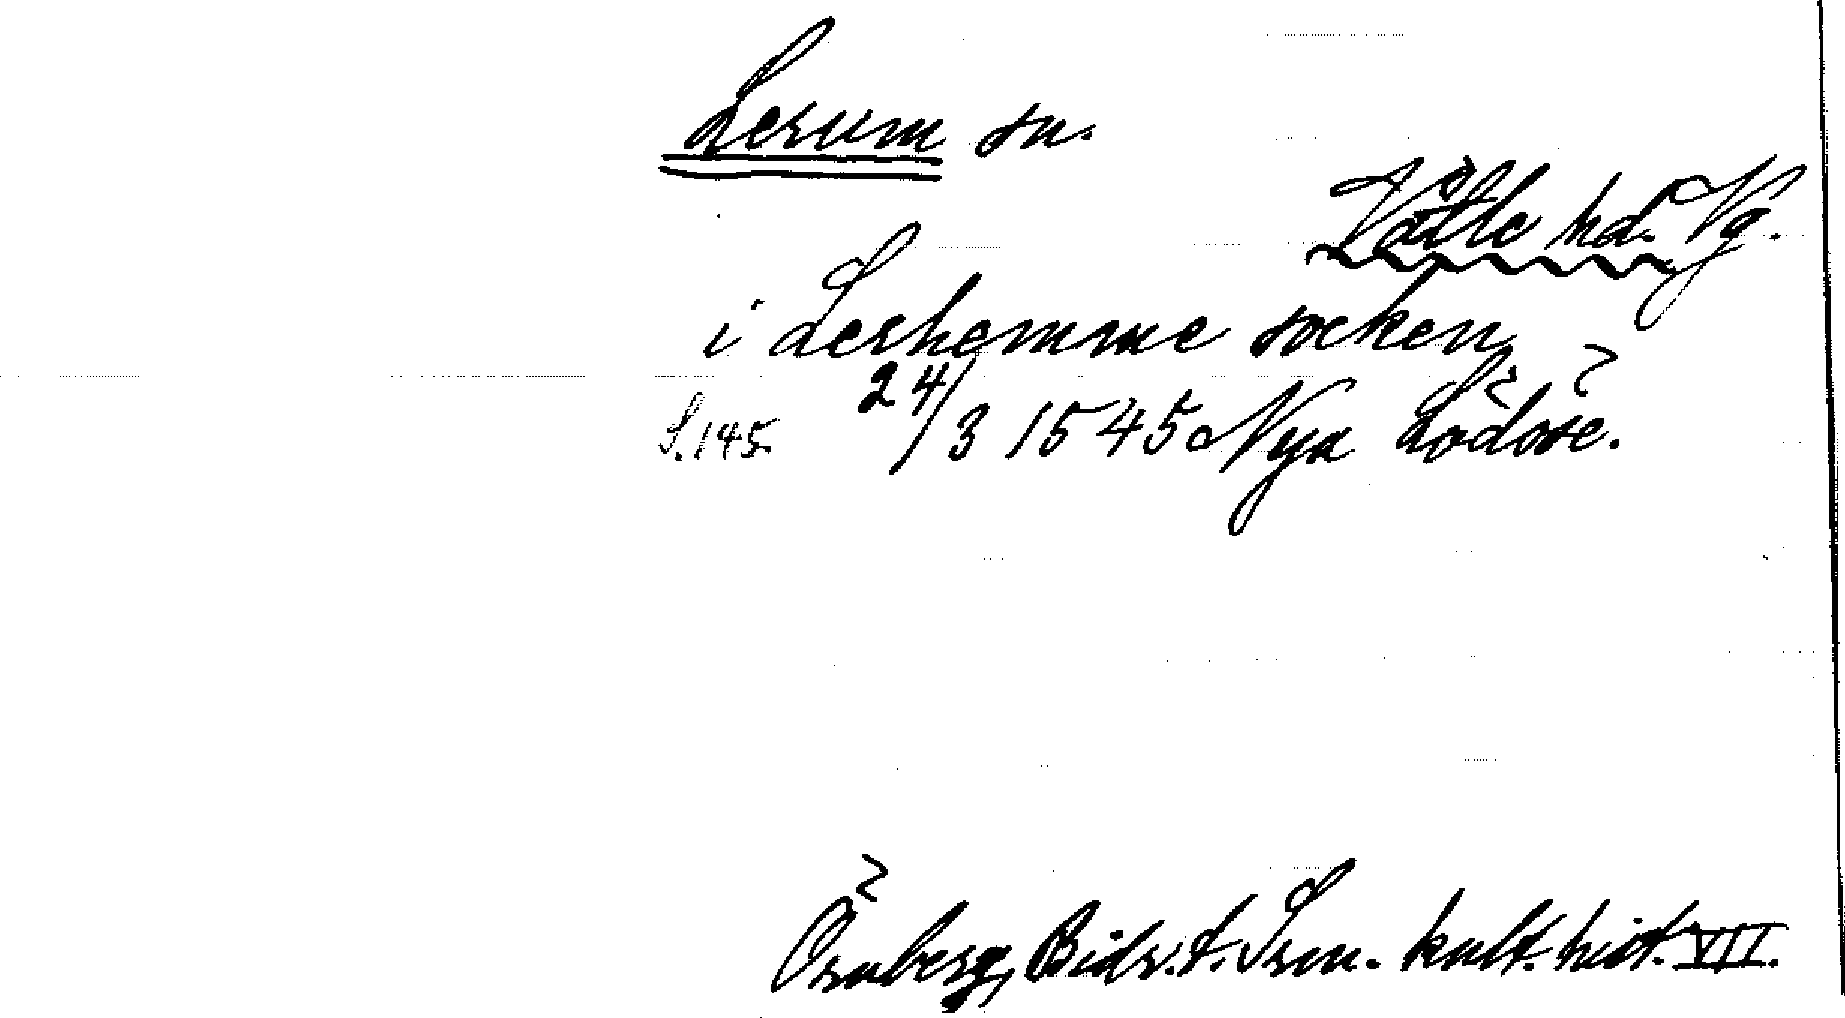 Lerum sn.
Vättle hd. Vg.
i Lerhemme socken
S. 145. 24/3 1545 Nya Lödöse.
Örnberg, Bidr. t. Sv. kult. hist. VII.